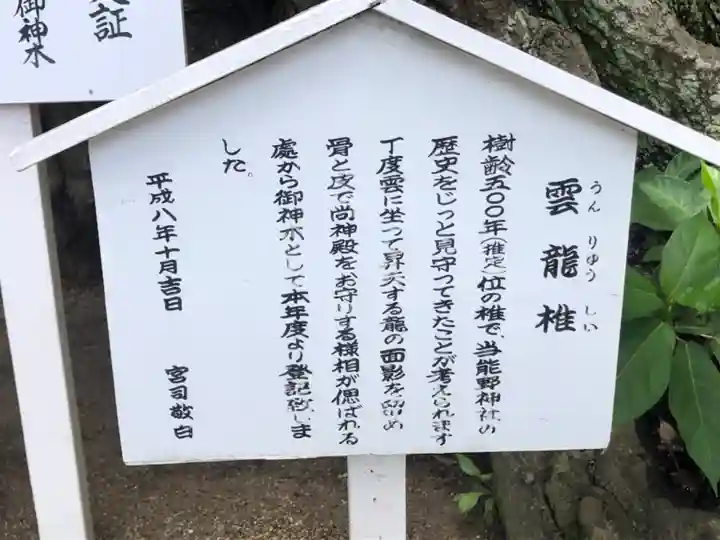 雲龍椎
うん りゅう しい
樹齢五〇〇年(推定)位の椎で、当熊野神社の
歴史をじっと見守ってきたことが考えられます
丁度雲に坐って昇天する龍の面影を留め
骨と皮で尚神殿をお守りする様相が偲ばれる
處から御神木として本年度より登記致しま
した。
平成八年十月吉日 宮司敬白
証
御神木